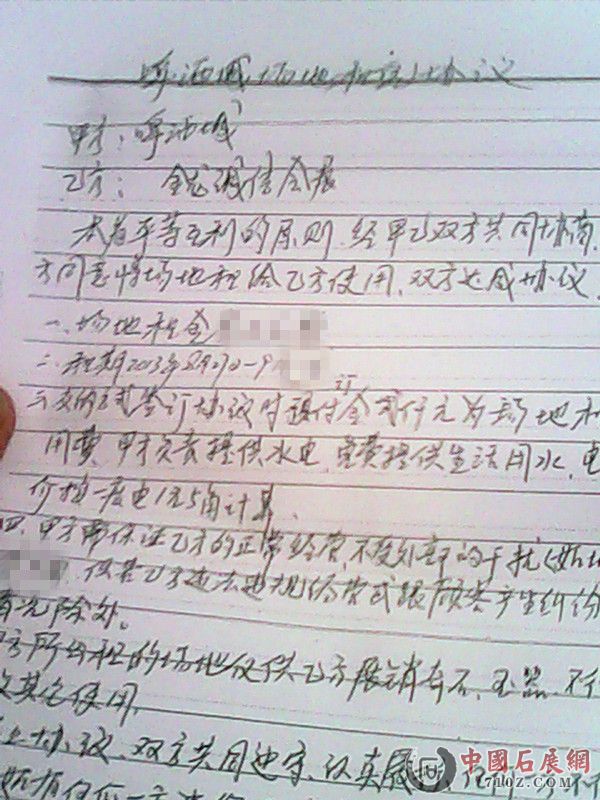 啤酒城场地租赁协议
甲方：啤酒城
乙方：金龙诚信会展
本着平等互利的原则、经甲乙双方共同协商、
方同意将场地租给乙方使用、双方达成协议
一、场地租金
二、租期2013年8月2
三、交的方式签订协议时预付订金 仟元为 场地租
用费、甲方负责提供水电、免费提供生活用水、电
价按一度电1元5角计算、
四、甲方需保证乙方的正常经营、不受外部的干扰（
，但若乙方违法违规经营或跟顾客产生纠纷
除外。
方所 租的场地仅供乙方展销奇石、玉器、不
其它使用、
上协议、双方共同遵守、认真履
如有任何一方
中國石展網
17102.com